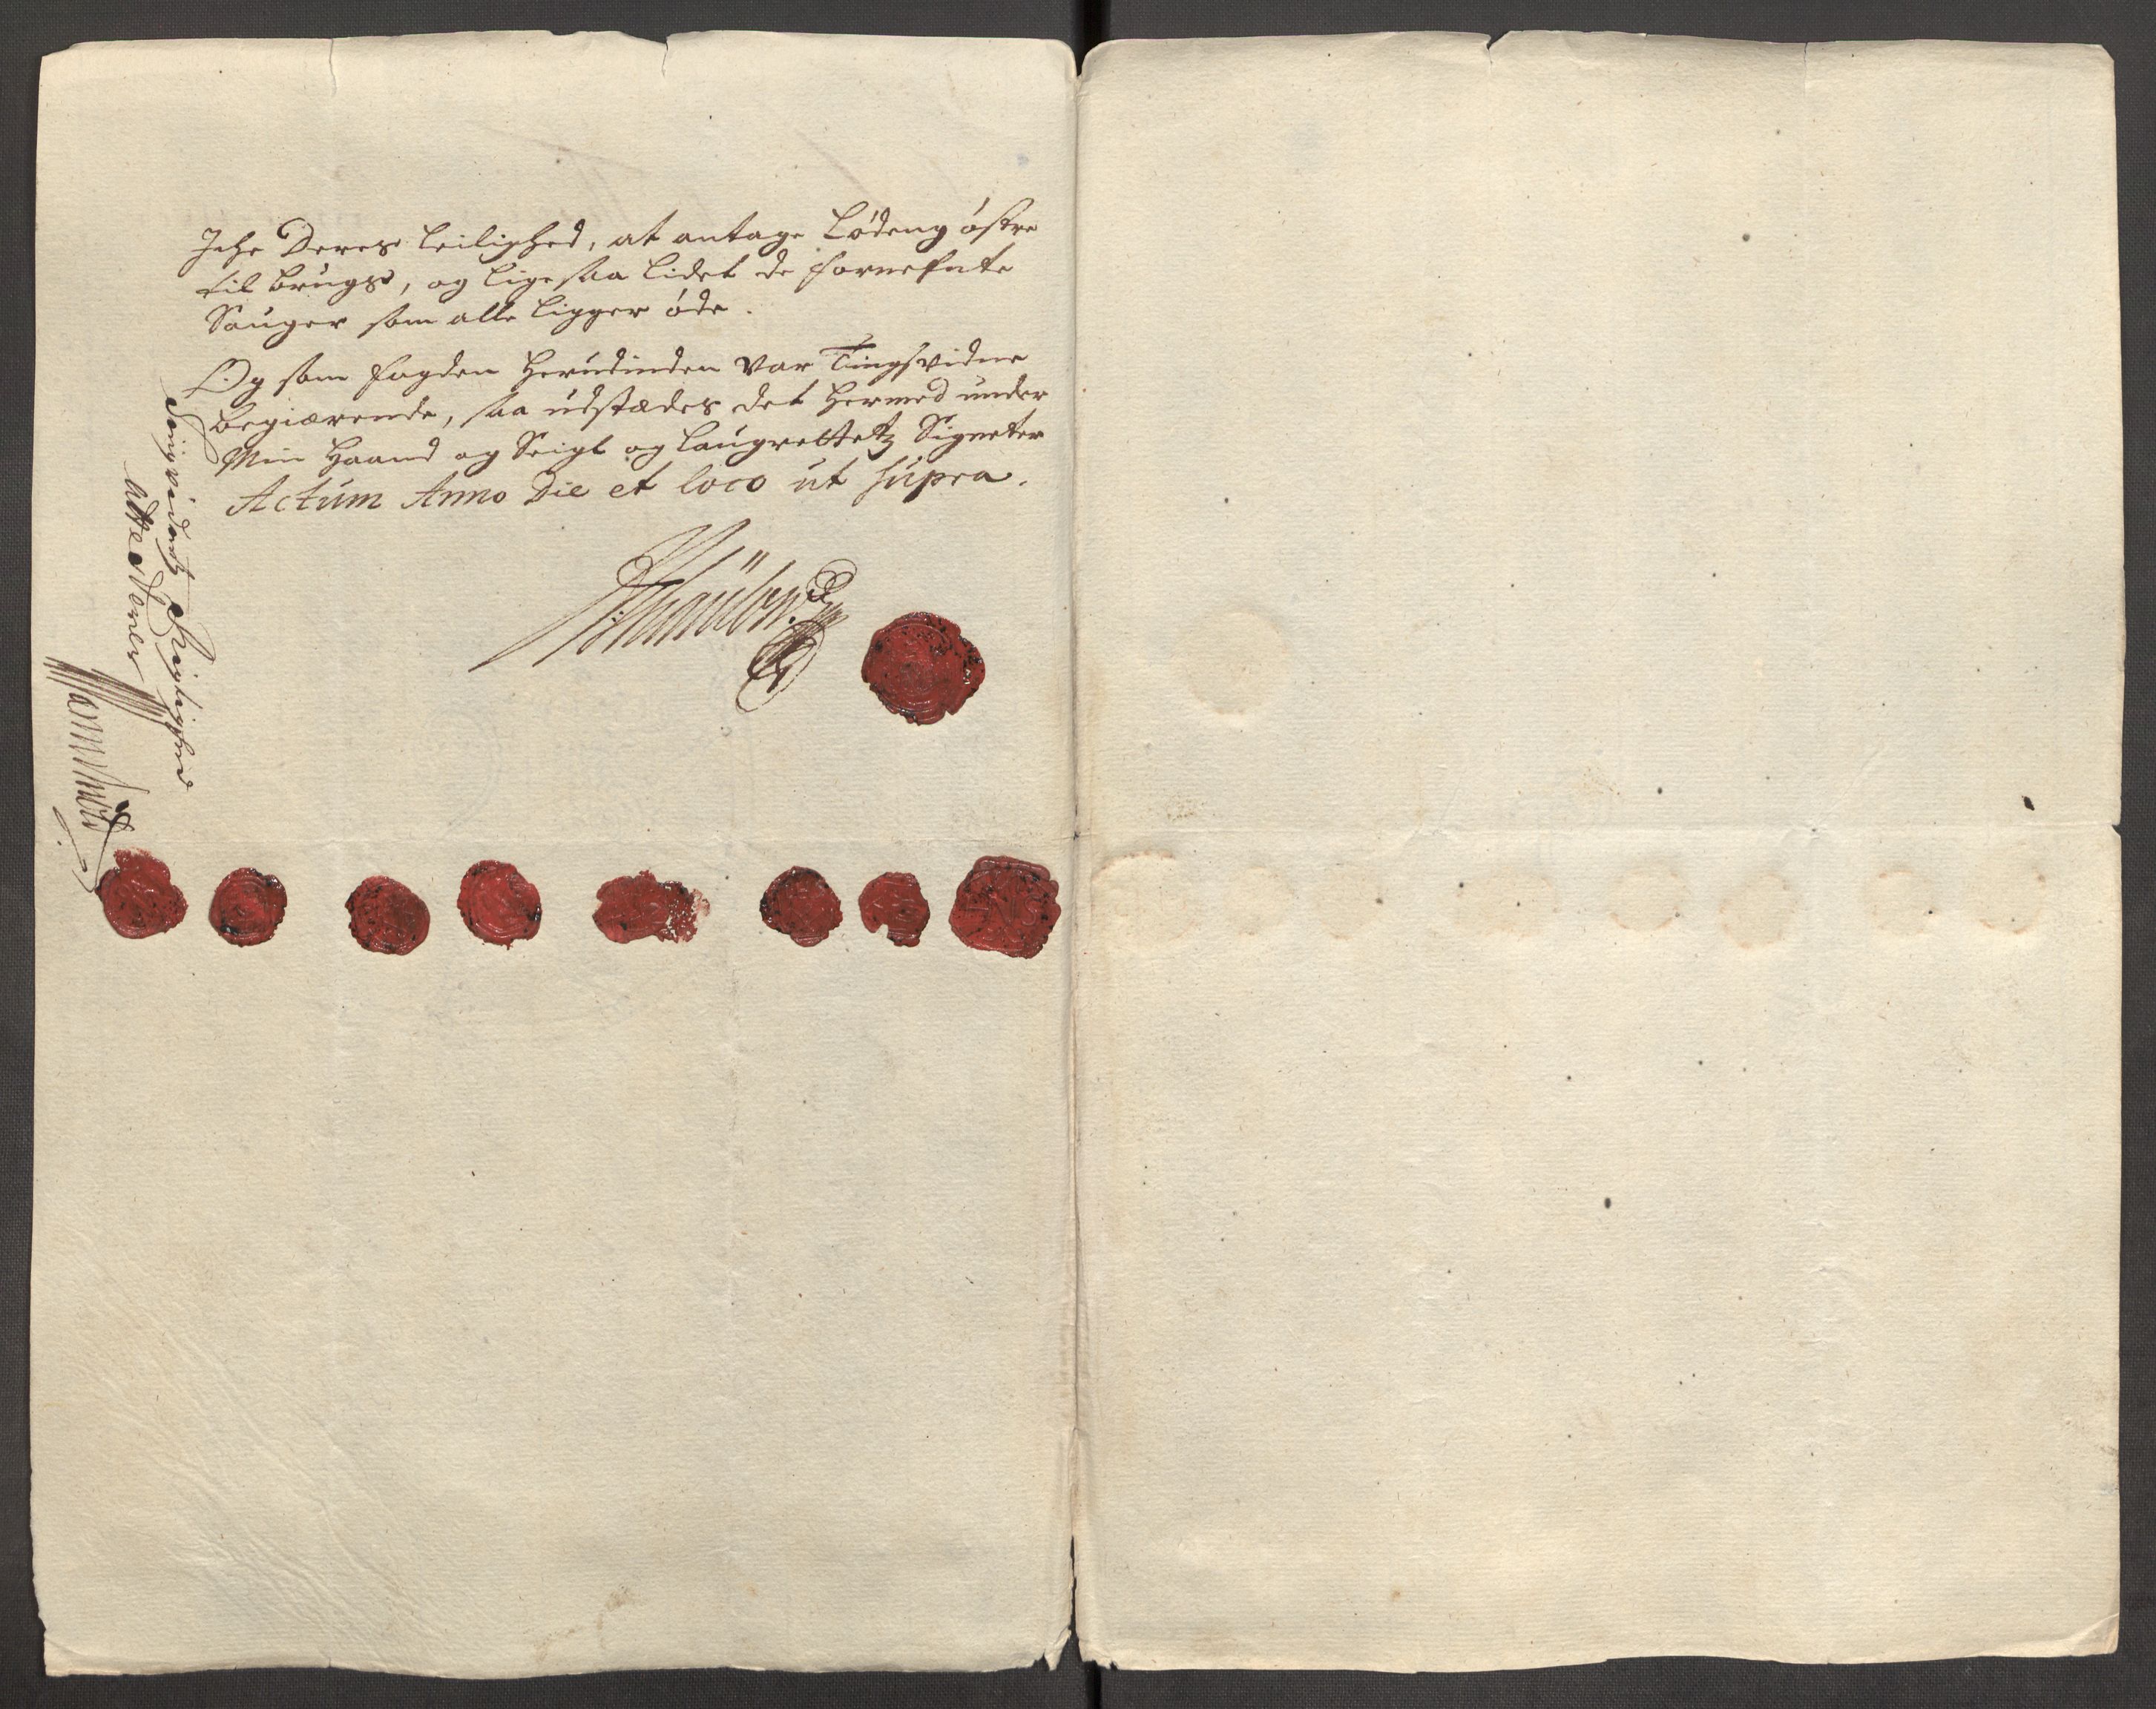 Iche Deres leilighed, at antage Lødeng østre
til brugs, og ligesaa lidet de fornefnte
Sauger som alle ligger øde.
Og som fogden herudinden var Tingsvidne
begiærende, saa udstædes det hermed under
Min haand og Seigl og Laugrettetz Signeter
Actum Anno Die et loco ut supra.
Tingvidnetz Rigtighed
attesterer